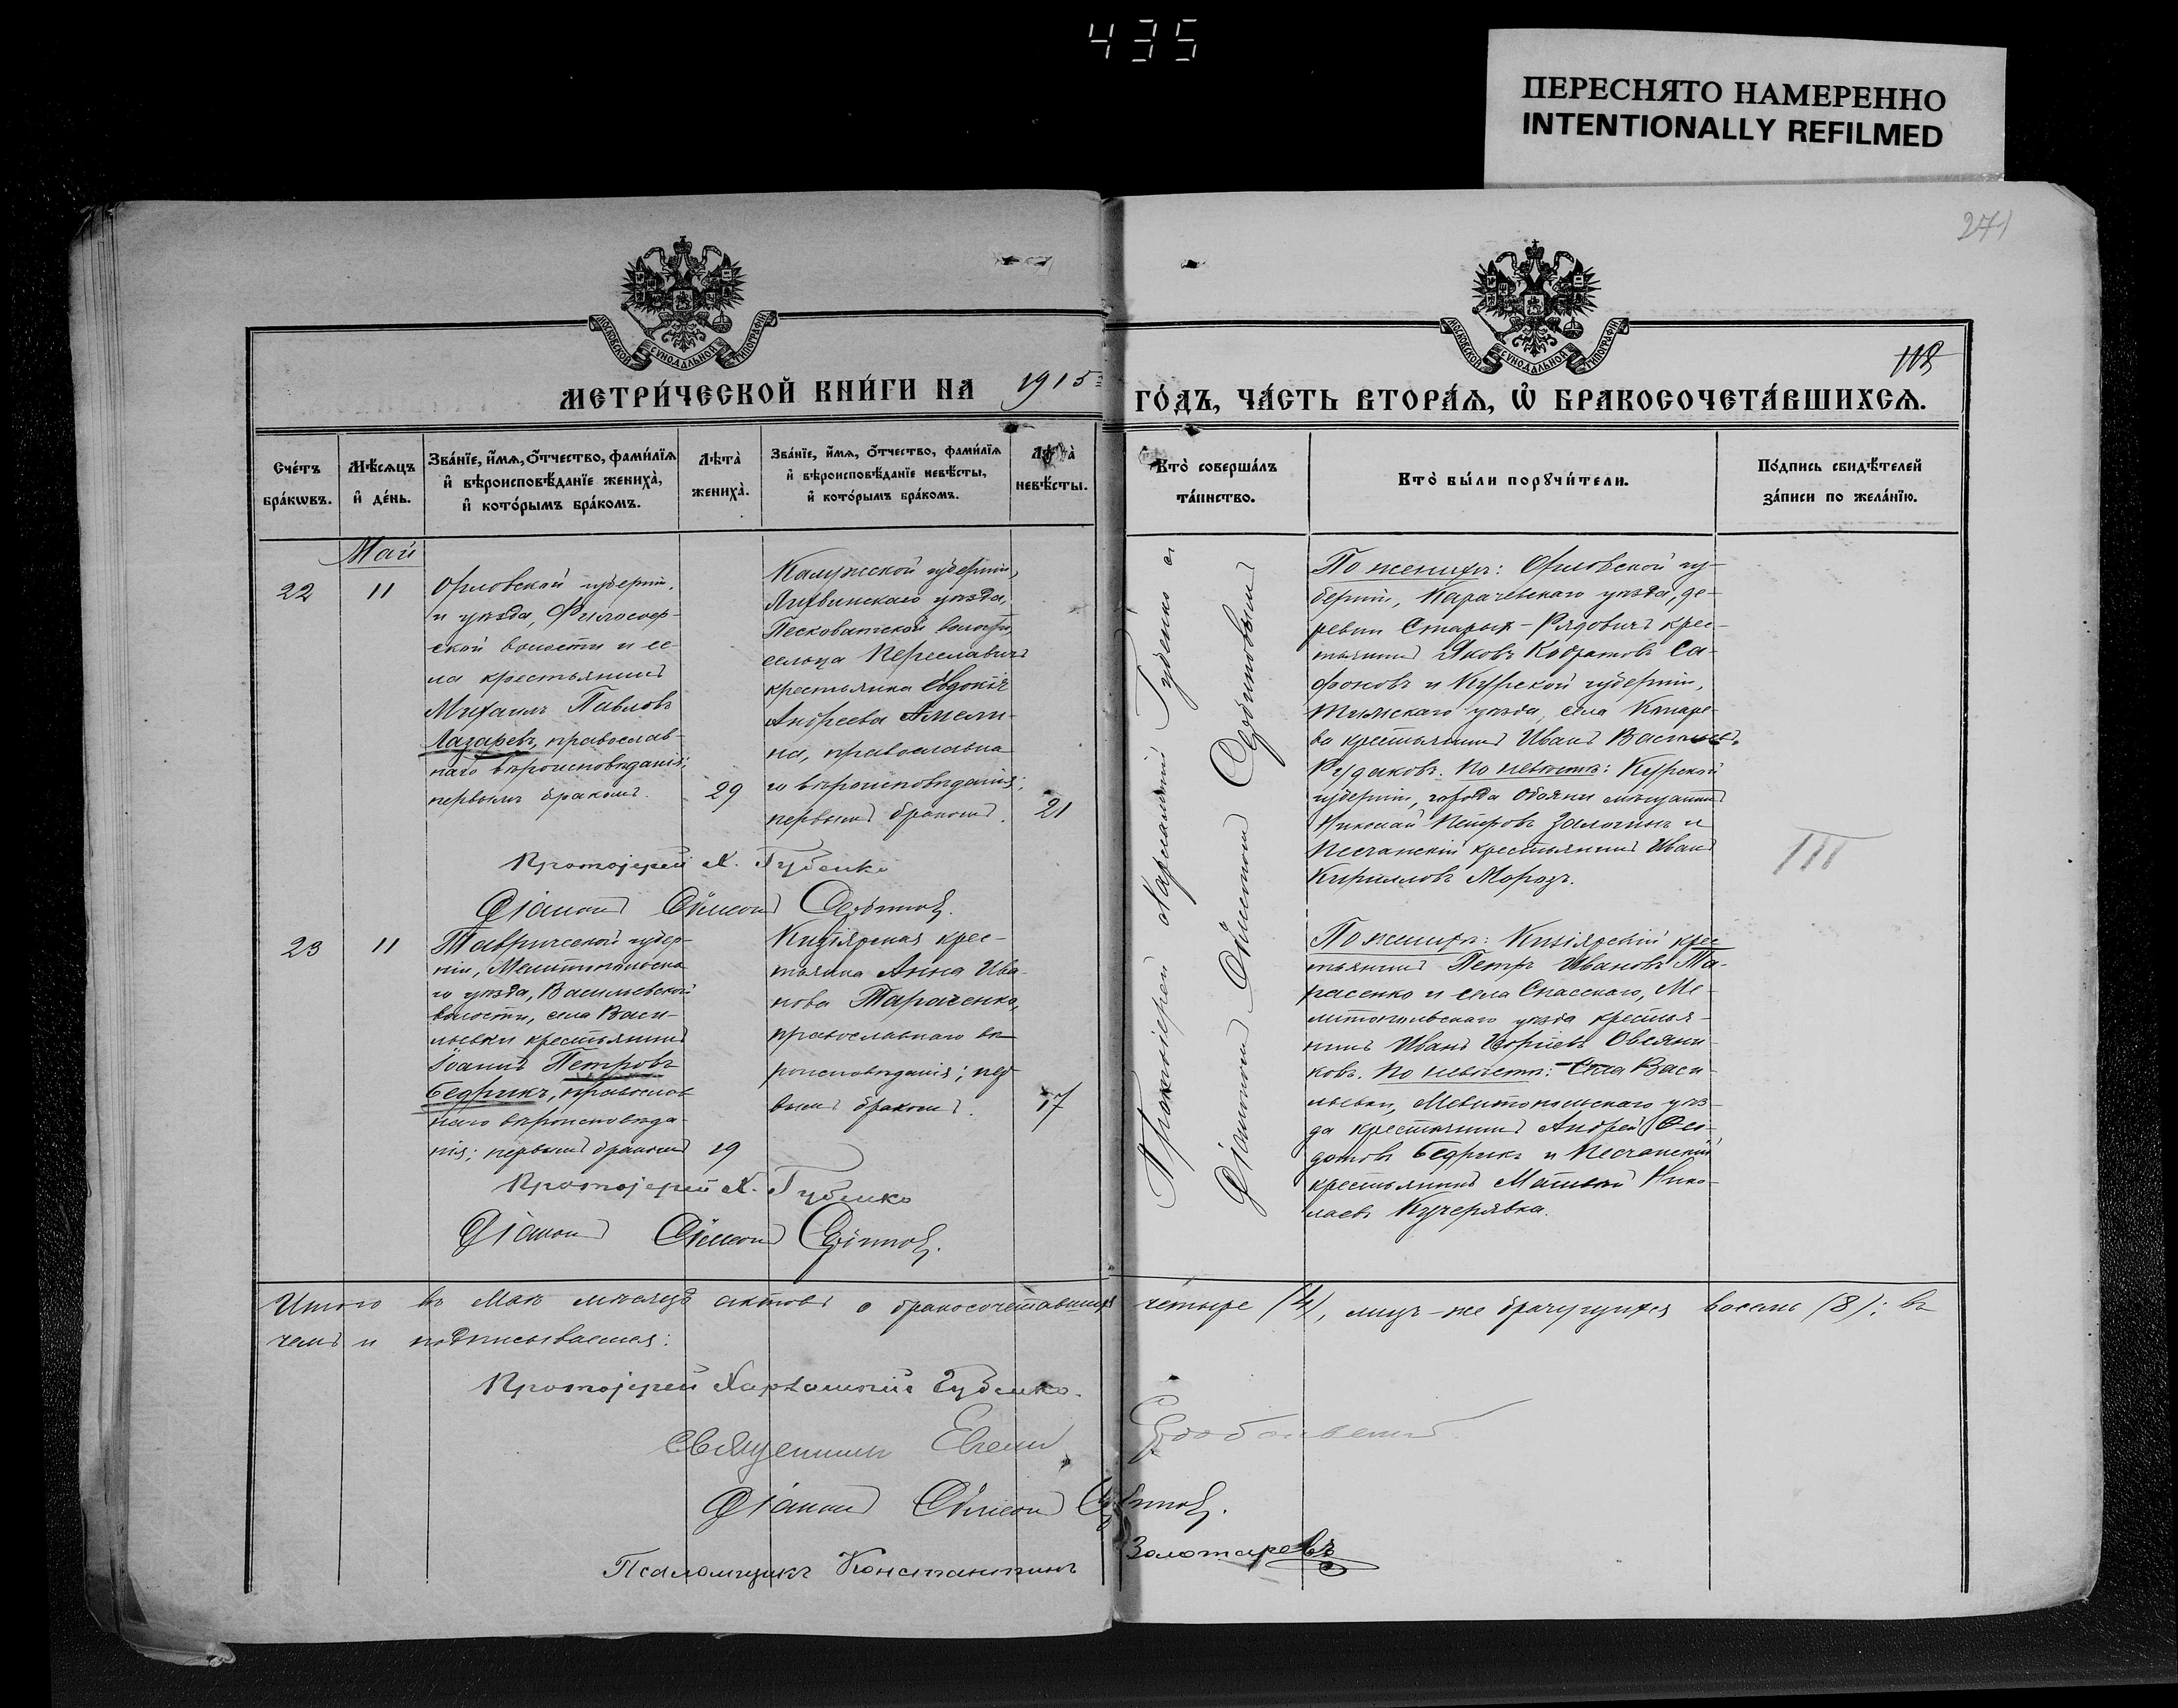 435
ПЕРЕСНЯТО НАМЕРЕННО
INTENTIONALLY REFILMED
271
МОСКОВСКОЙ СУНОДАЛЬНОЙ ТИПОГРАФІИ
МОСКОВСКОЙ СУНОДАЛЬНОЙ ТИПОГРАФІИ
118
МЕТРИ́ЧЕСКОЙ КНИ́ГИ НА 1915
ГО́ДЪ, ЧА́СТЬ ВТОРА́Ѧ, Ѽ БРАКОСОЧЕТА́ВШИХСѦ.
Сче́тъ
бра́кѡвъ.
Мѣ́сѧцъ
и҆ де́нь.
Зва́нїе, и҆́мѧ, ѻ҆́тчество, фами́лїѧ
и҆ вѣроисповѣ́данїе жениха̀,
и҆ кото́рымъ бра́комъ.
Лѣта̀
жениха̀.
Зва́нїе, и҆́мѧ, ѻ҆́тчество, фами́лїѧ
и҆ вѣроисповѣ́данїе невѣ́сты,
и҆ кото́рымъ бра́комъ.
Лѣта̀
невѣ́сты.
Кто̀ соверша́лъ
та́инство.
Кто̀ бы́ли порꙋчи́тели.
По́дпись свидѣ́телей
за́писи по жела́нїю.
Май
22
11
Орловской губерніи
и уѣзда, Философ-
ской волости и се-
ла крестьянинъ
Михаилъ Павловъ
Лазаревъ, православ-
наго вѣроисповѣданія;
первымъ бракомъ.
29
Калужской губерніи,
Лихвинскаго уѣзда,
Песковатской волости,
сельца Переславичъ
крестьянка Евдокія
Андреева Амели-
на, православна
го вѣроисповѣданія;
первымъ бракомъ.
21
Протоіерей Х. Губенко
Діаконъ Сѵмеонъ
Протоіерей Харлампій Губенко съ
Діакономъ Сѵмеономъ
По женихѣ: Орловской гу-
берніи, Карачевскаго уѣзда, де-
ревни Старыя-Рядовичи крес-
тьянинъ Яковъ Кодратовъ Са-
фоновъ и Курской губерніи,
Тимскаго уѣзда, села
ва крестьянинъ Иванъ Васильевъ
Рудаковъ. По невѣстѣ: Курской
губерніи, города Обояни мѣщанинъ
Николай Петровъ и
Песчанскій крестьянинъ Иванъ
Кирилловъ Морозъ.
III
23
11
Таврической губер-
ніи, Мелитопольска
го уѣзда, Васильевской
волости, села Васи-
льевки крестьянинъ
Іоаннъ Петровъ
Бедрикъ, православ
наго вѣроисповѣда
нія; первымъ бракомъ
19
Кизіярская крес-
тьянка Анна Ива-
нова Тарасенко,
православнаго вѣ
роисповѣданія; пер
вымъ бракомъ.
17
Протоіерей Х. Губенко
Діаконъ Сѵмеонъ
По женихѣ: Кизіярскій крес
тьянинъ Петръ Ивановъ Та-
расенко и села Спасскаго, Ме-
литопольскаго уѣзда крестья-
нинъ Иванъ Овсяни-
ковъ. По невѣстѣ: Села Васи-
льевки, Мелитопольскаго уѣз-
да крестьянинъ Андрей Фео-
дотовъ Бедрикъ и Песчанскій
крестьянинъ Матвѣй Нико-
лаевъ Кучерявка.
Итого въ Маѣ мѣсяцѣ актовъ о бракосочетавшихся четыре (4), лицъ-же брачущихся восемь (8); въ
чемъ и подписываемся:
Протоіерей Харлампій Губенко.
Священникъ Евгеній
Діаконъ Сѵмеонъ
Псаломщикъ Константинъ Золотаревъ